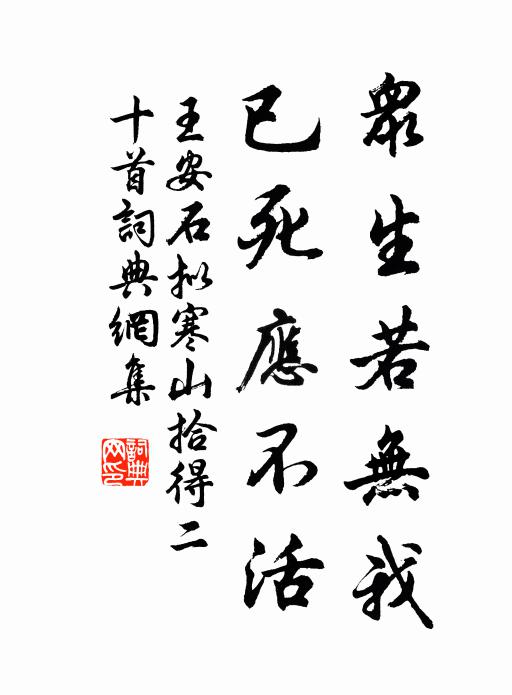 眾生若無我
已死應不活
王安石拟寒山拾得二
十首詞典網集
詞典网印